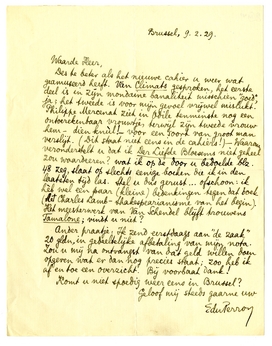 Brussel, 9.2.29.
Waarde Heer,
Des te beter als het nieuwe cahier u weer wat
manuscript heeft. Van Climats gesproken, het eerste
deel is in zijn mondaine banaliteit misschien "goed"
ja; het tweede is voor mijn gevoel vrijwel mislukt.
Philippe Marcenat ziet in Odile tenminste nog een
ontoerekenbaar vrouwtje, terwijl zijn tweede vrouw
hem - voor een soort van groot man
verslijt. (Dit staat niet eens in de cahiers!) - Waarom
veronderstelt u dat ik Der Liefde Bloesems niet geheel
zou waardeeren? wat ik op de door u bedoelde blz.
48 zeg, slaat op slechts eenige boeken die ik in den
laatsten tijd las. Stel u dus gerust... ofschoon ik
het wel een paar (kleine) bedenkingen tegen het boek
(dit Charles Lamb-shakespearianisme van het begin).
Het meesterwerk van Van Schendel blijft trouwens
Tamalone; vindt u niet?
Ander praatje: Ik zend eerstdaags aan "de zaak"
20 gldn, in gedeeltelijke afbetaling van mijn nota.
Zou u mij na ontvangst van dat geld willen doen
opgeven wat er dan nog precies staat; zoo heb ik
af en toe een overzicht. Bij voorbaat dank!
Komt u niet spoedig weer eens in Brussel?
Geloof mij steeds gaarne uw
EduPerron